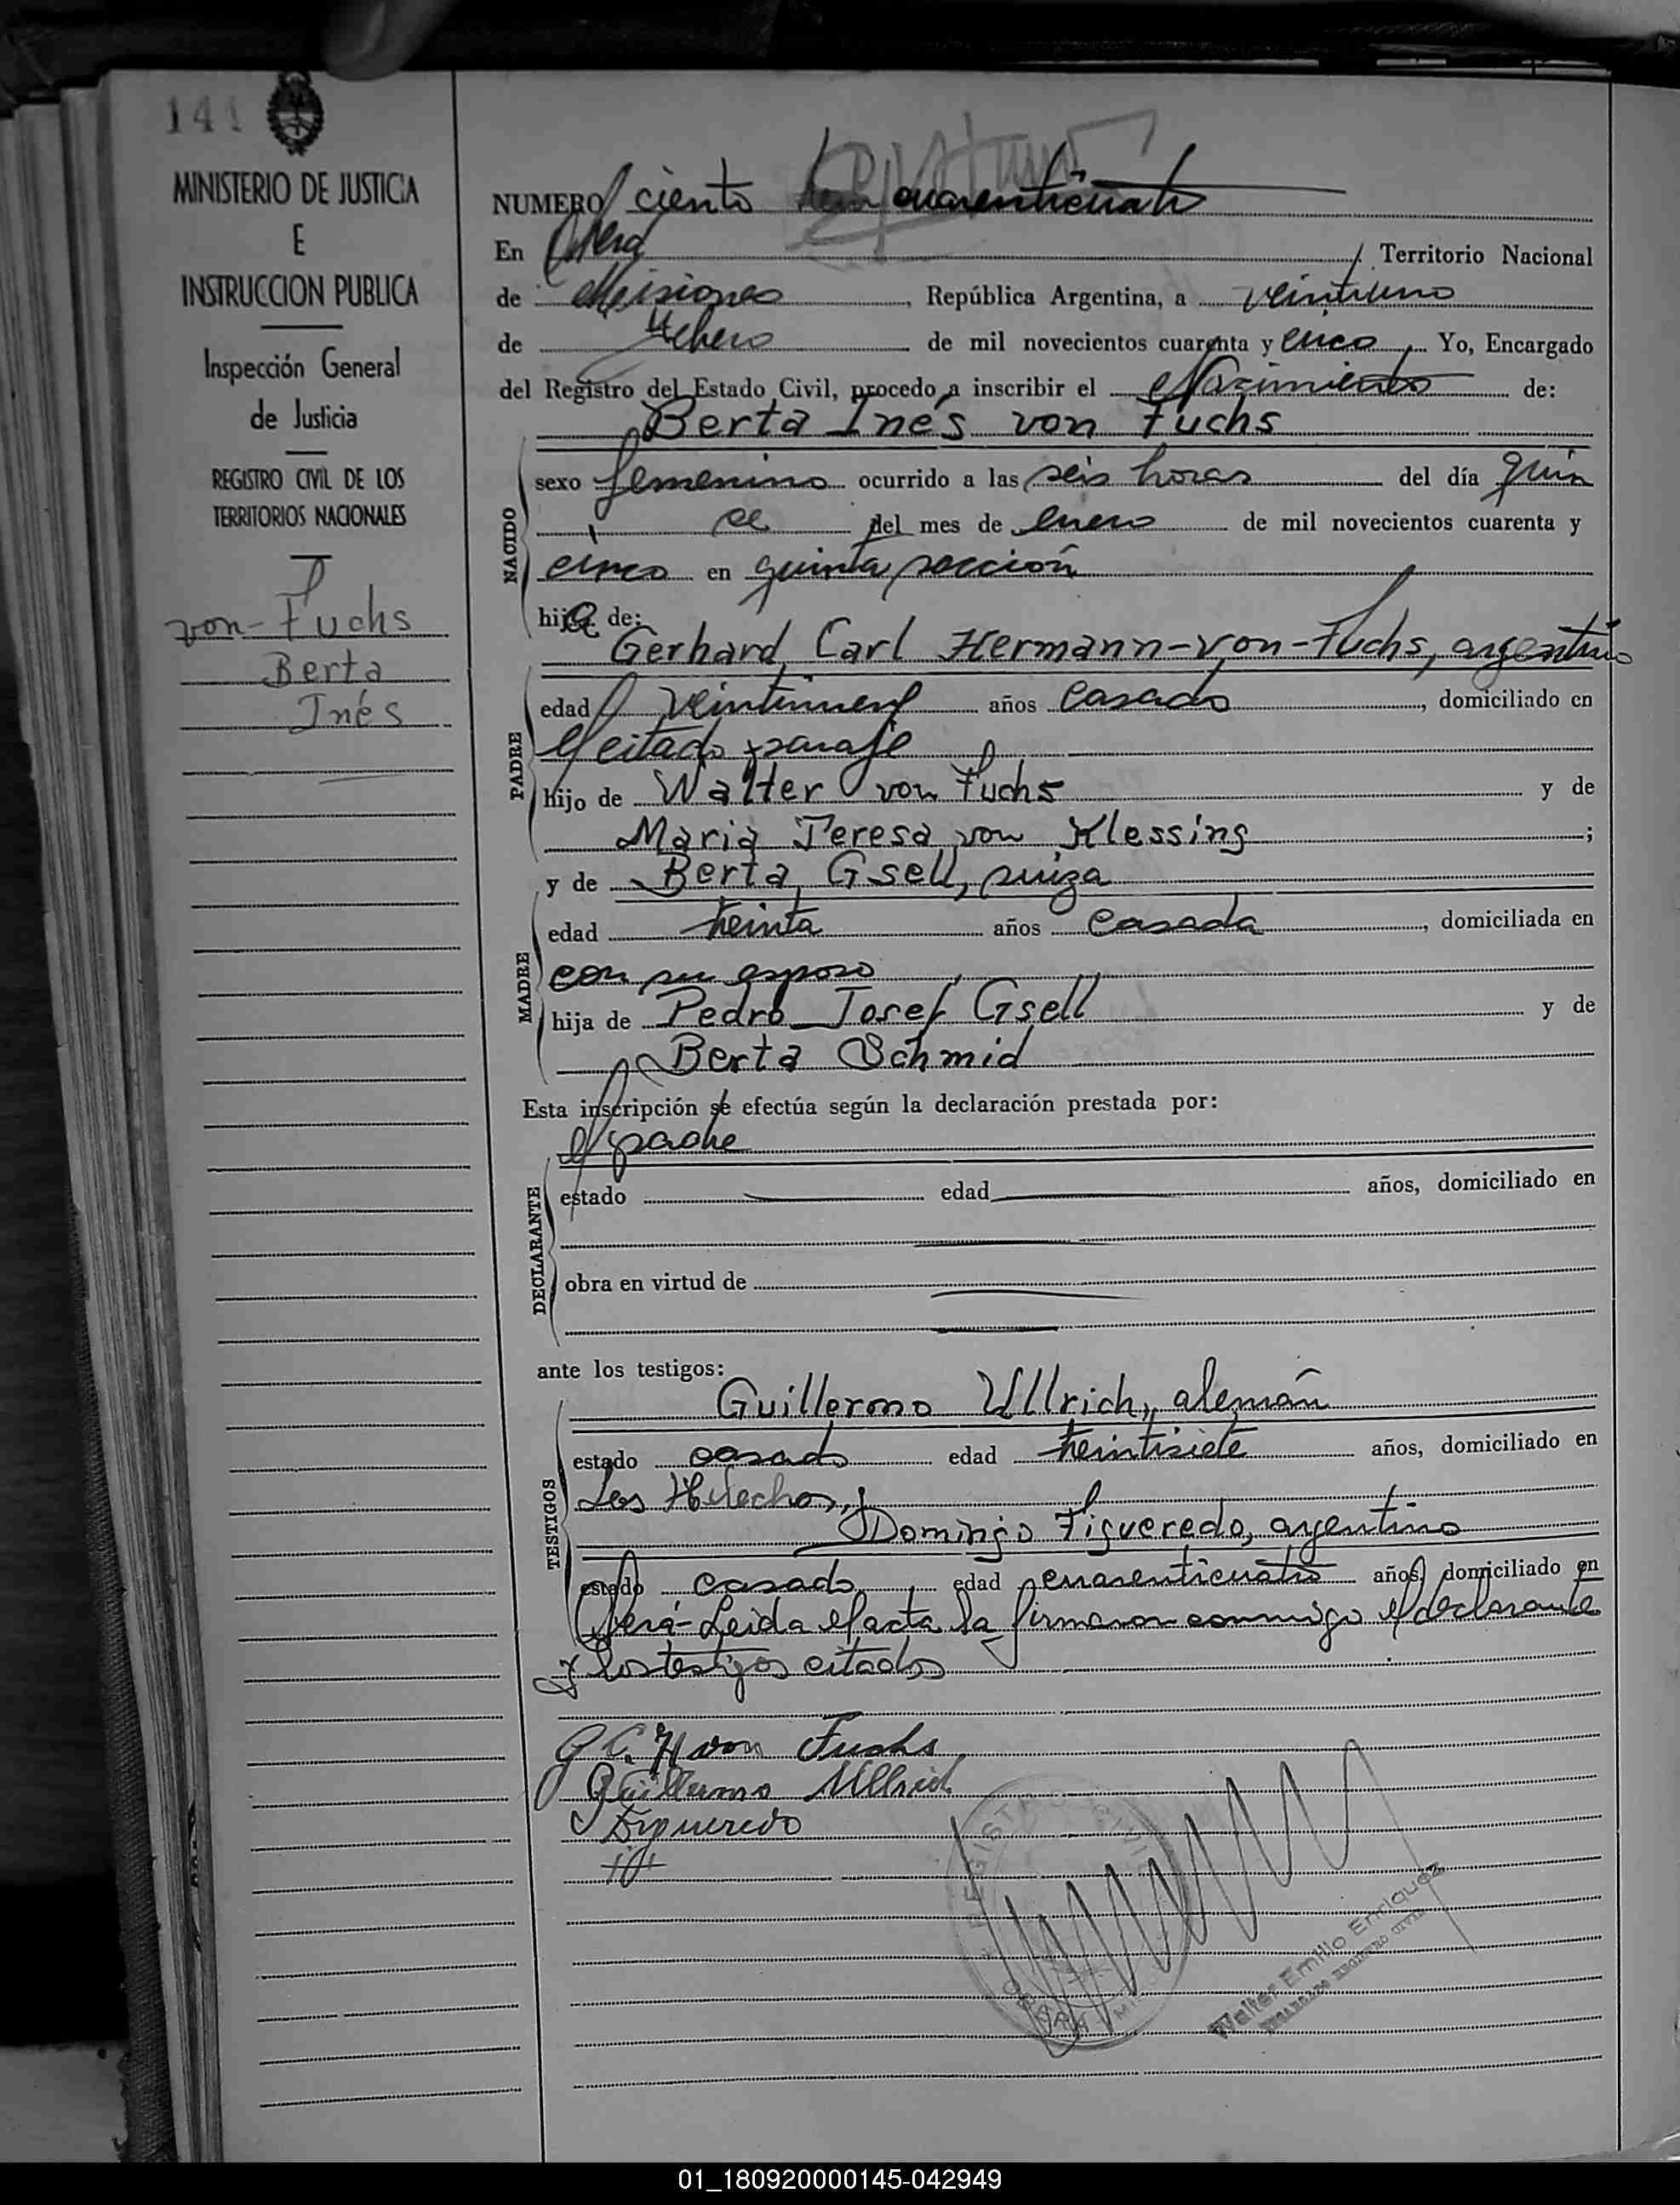 141
MINISTERIO DE JUSTICIA
E
INSTRUCCION PUBLICA
Inspección General
de Justicia
REGISTRO CIVIL DE LOS
TERRITORIOS NACIONALES
von-Fuchs
Berta
Inés
NUMERO ciento cuarenticuatro
En Oberá Territorio Nacional
de Misiones, República Argentina, a veintiuno
de Febrero de mil novecientos cuarenta y cinco, Yo, Encargado
del Registro del Estado Civil, procedo a inscribir el Nacimiento de:
Berta Inés von Fuchs
NACIDO
sexo femenino ocurrido a las seis horas del día quin
ce del mes de enero de mil novecientos cuarenta y
cinco en quinta sección
hija de:
Gerhard Carl Hermann-von-Fuchs, argentino
PADRE
edad veintinueve años casado, domiciliado en
el citado paraje
hijo de Walter von Fuchs y de
Maria Teresa von Klessing;
y de Berta Gsell, suiza
MADRE
edad treinta años casada, domiciliada en
con su esposo
hija de Pedro Josef Gsell y de
Berta Schmid
Esta inscripción se efectúa según la declaración prestada por:
el padre
DECLARANTE
estado edad años, domiciliado en
obra en virtud de
ante los testigos:
TESTIGOS
Guillermo Ullrich, alemán
estado casado edad treintisiete años, domiciliado en
Los Helechos,
Domingo Figueredo, argentino
estado casado, edad cuarenticuatro años, domiciliado en
Oberá-Leida el acta la firmaron conmigo el declarante
y los testigos citados
G C. H von Fuchs
Guillermo Ullrich
Figueredo
REGISTRO CIVIL
Walter Emilio Enriquez
ENCARGADO REGISTRO CIVIL
01_180920000145-042949